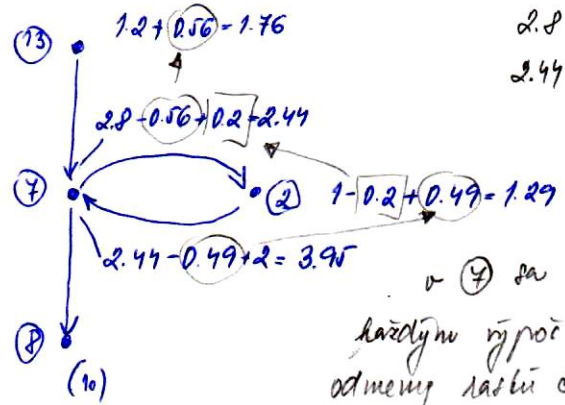 13 1.2 + 0.56 = 1.76
2.8
2.44
2.8 - 0.56 + 0.2 = 2.44
7
2 1 - 0.2 + 0.49 = 1.29
2.44 - 0.49 + 2 = 3.95
v 7 sa
8 každým výpoč
(10) odmeny rastú